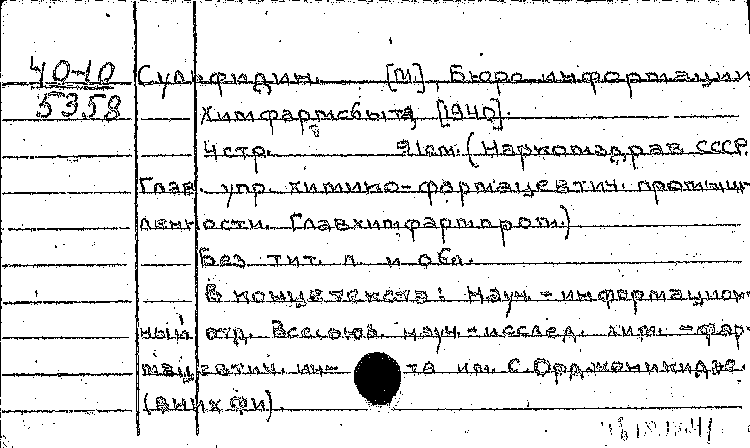 40-10 Сульфидин. [М.], Бюро информации
5358
Химфармсбыта, [1940].
4 стр. 21 см. (Наркомздрав СССР.
Глав. упр. химико-фармацевтич. промыш-
ленности. Главхимфармпром.)
Без тит. л. и обл.
В конце текста: Науч.-информацион-
ный отд. Всесоюз. науч.-исслед. хим.-фар-
мацевтич. ин-та им. С. Орджоникидзе.
(ВНИХФИ).